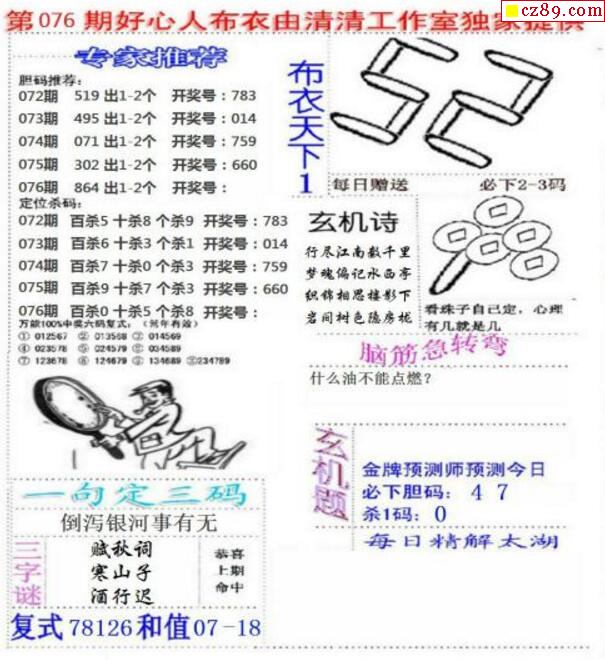 cz89.com
第 076 期好心人布衣由清清工作室独家提供
专家推荐
胆码推荐:
072期 519 出1-2个 开奖号:783
073期 495 出1-2个 开奖号:014
074期 071 出1-2个 开奖号:759
075期 302 出1-2个 开奖号:660
076期 864 出1-2个 开奖号:
定位杀码:
072期 百杀5 十杀8 个杀9 开奖号:783
073期 百杀6 十杀3 个杀1 开奖号:014
074期 百杀7 十杀0 个杀3 开奖号:759
075期 百杀9 十杀7 个杀3 开奖号:660
076期 百杀0 十杀5 个杀8 开奖号:
万能100%中奖六码复式:(常年有效)
① 012567 ② 013568 ③ 014569
④ 023578 ⑤ 024579 ⑥ 034589
⑦ 123678 ⑧ 124679 ⑨ 134689 ⑩234789
布衣天下1
52
每日赠送 必下2-3码
玄机诗
行尽江南数千里
梦魂偏记水西亭
织锦相思楼影下
岩间树色隐房栊
看珠子自己定,心理
有几就是几
脑筋急转弯
什么油不能点燃?
玄机题
金牌预测师预测今日
必下胆码: 4 7
杀1码: 0
每日精解太湖
一句定三码
倒泻银河事有无
三字谜
赋秋词
寒山子
酒行迟
恭喜
上期
命中
复式 78126 和值 07-18